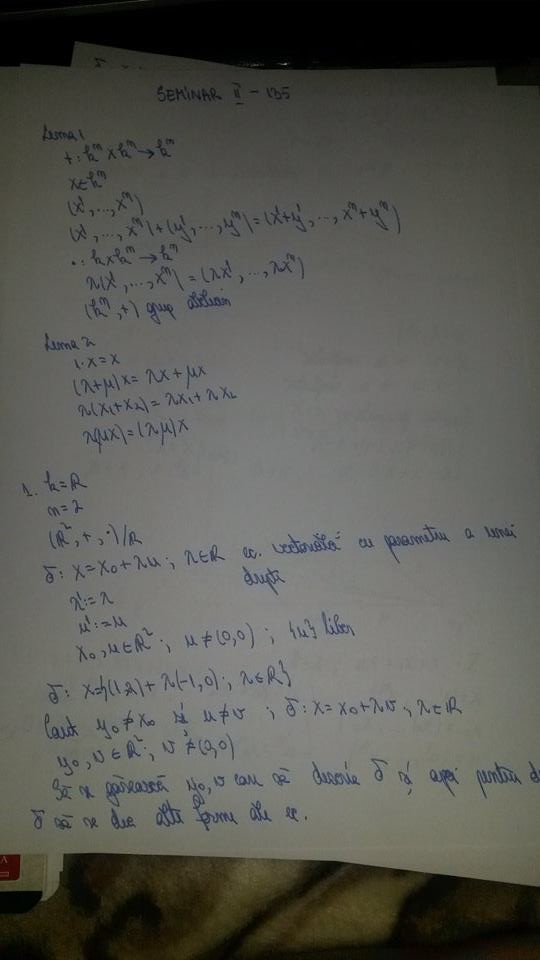 SEMINAR II - 135
Lema 1
+: k^n x k^n → k^n
x∈k^n
(x¹, ..., xⁿ)
(x¹, ..., xⁿ) + (y¹, ..., yⁿ) = (x¹+y¹, ..., xⁿ+yⁿ)
·: k x k^n → k^n
λ(x¹, ..., xⁿ) = (λx¹, ..., λxⁿ)
(k^n, +) grup abelian
Lema 2
1·x = x
(λ+μ)x = λx + μx
λ(x₁+x₂) = λx₁ + λx₂
λ(μx) = (λμ)x
1. k = ℝ
n = 2
(ℝ², +, ·)/ℝ
δ: x = x₀ + λu ; λ∈ℝ ec. vectorială cu parametru a unei
drepte
λ':= λ
x₀, u ∈ ℝ² ; u ≠ (0,0) ; {u} liber
δ: x={(1,2) + λ(-1,0) ; λ∈ℝ}
Caut y₀ ≠ x₀ și u ≠ v ; δ: x = x₀ + λv ; λ∈ℝ
y₀, v ∈ ℝ² ; v ≠ (0,0)
Să se găsească y₀, v care să descrie δ și apoi pentru
δ să se dea alte forme ale ec.